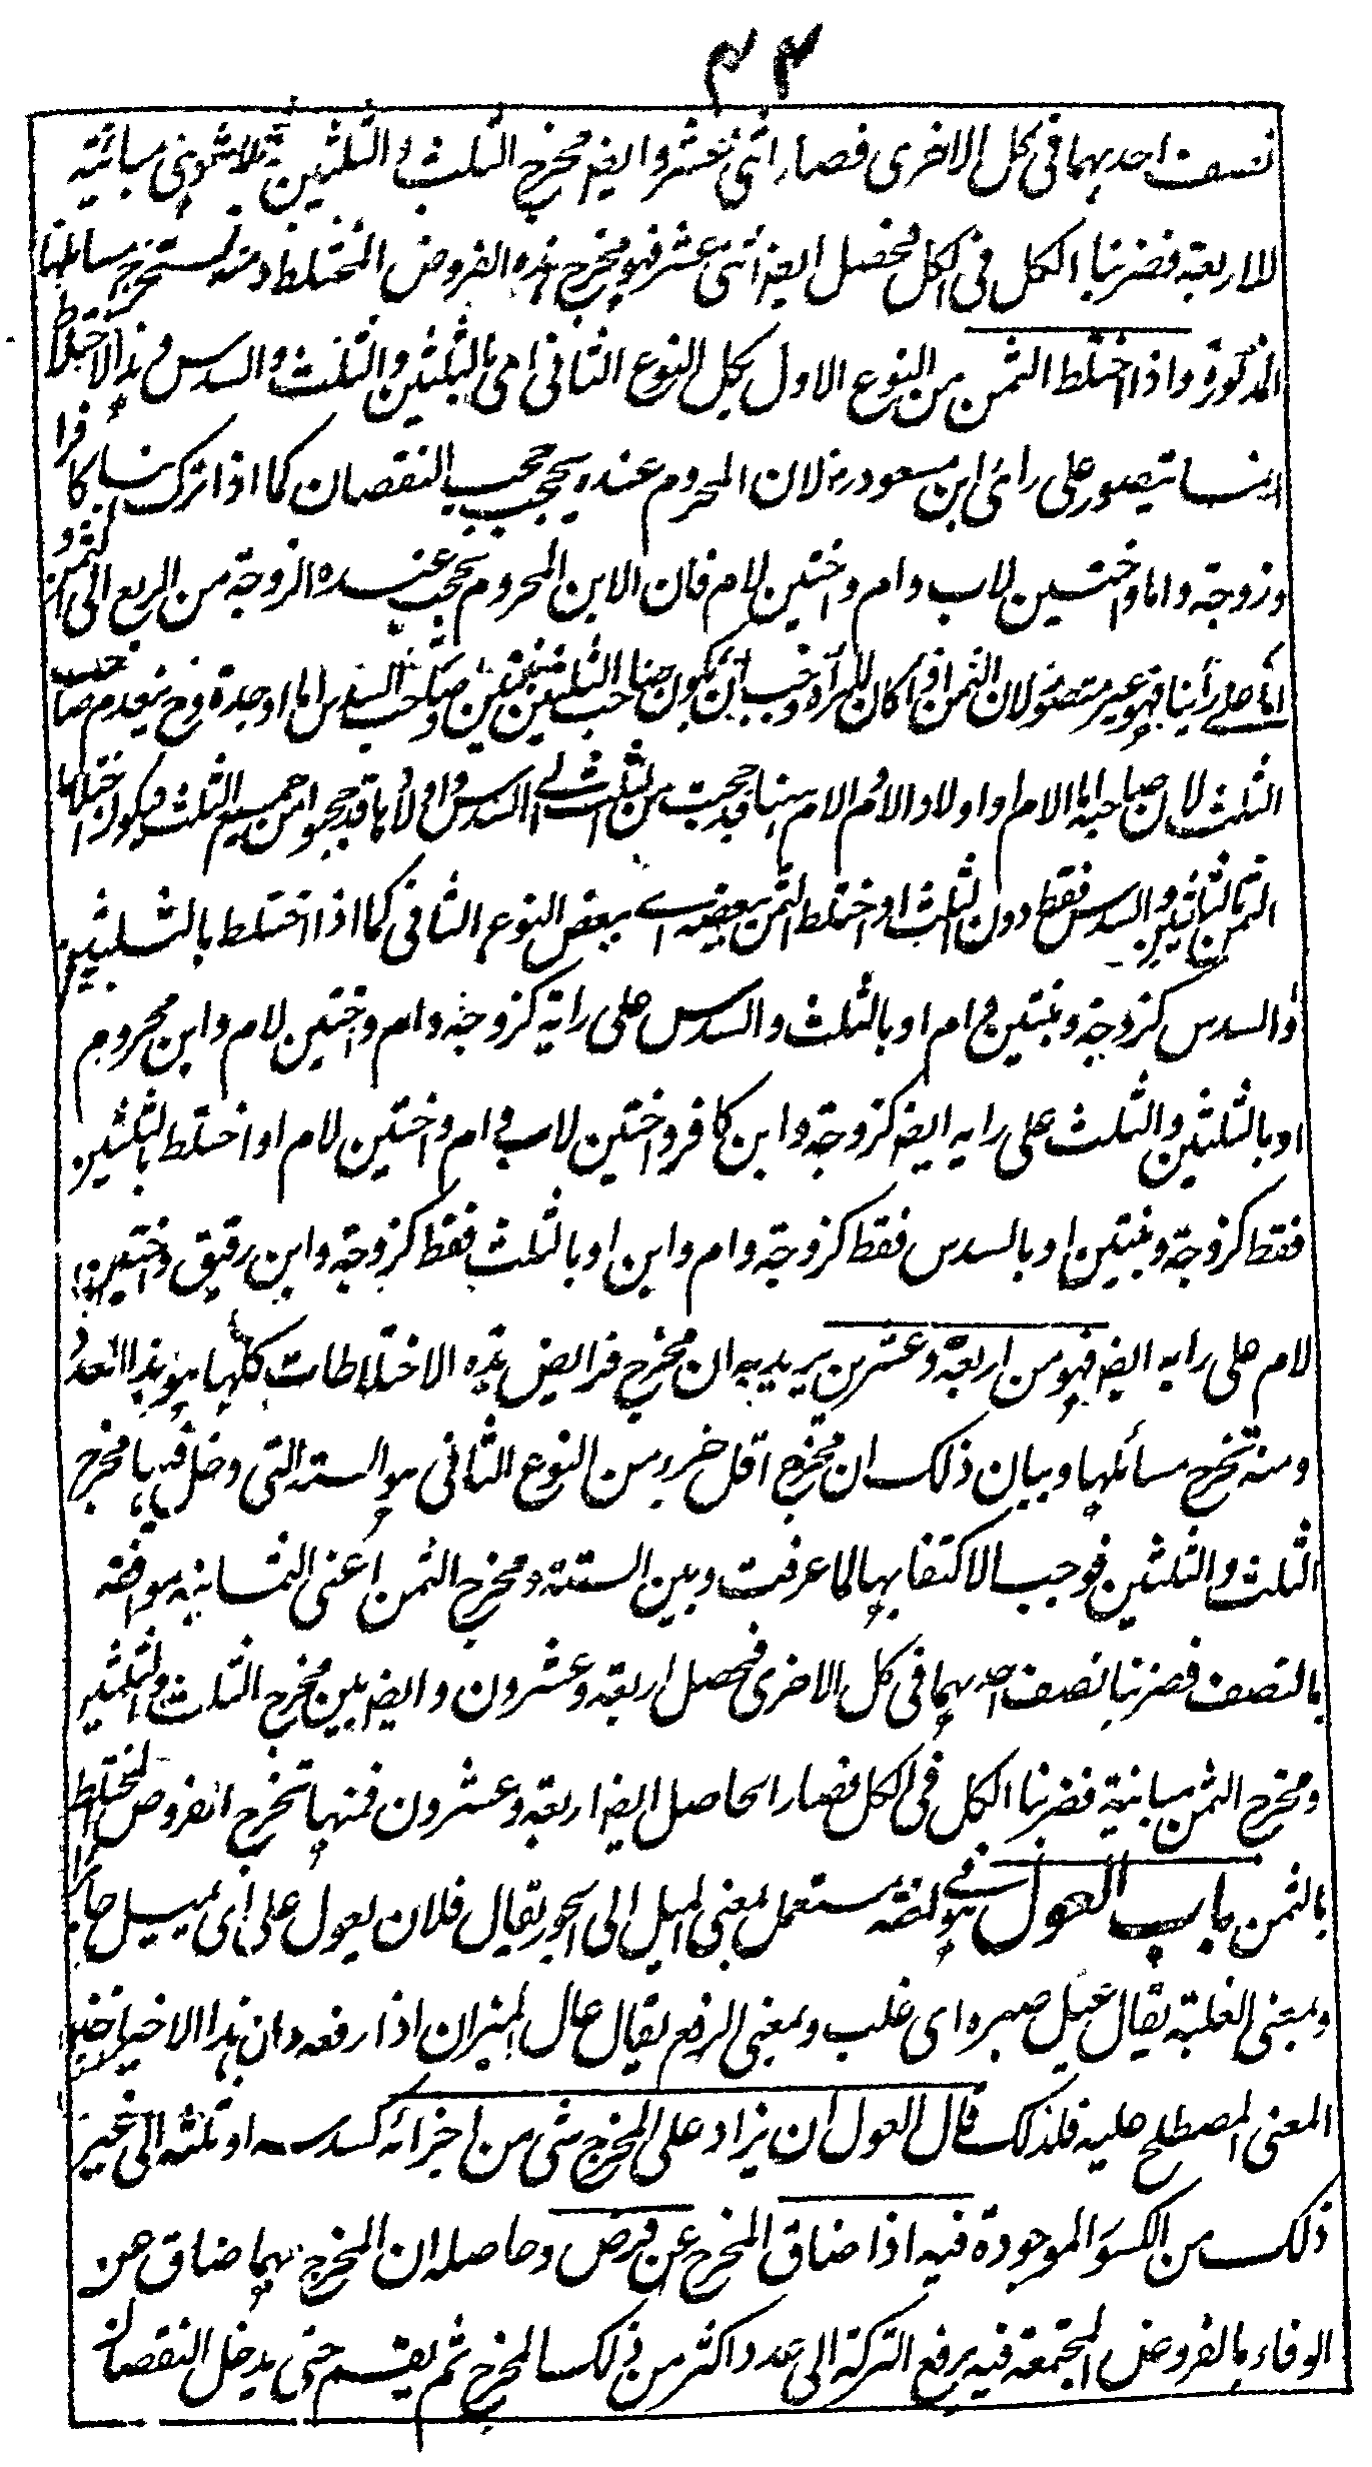 ۴۴
نصف احدهما فى كل الاخرى فصار اثنى عشر وايضه مخرج الثلث والثلثين ثلاثة وهى مباينة
للاربعة فضربنا الكل فى الكل فحصل ايضه اثنى عشر فهو مخرج هذه الفروض المختلطة ومنه تستخرج مسائلها
المذكورة واذا اختلط الثمن من النوع الاول بكل النوع الثانى اى بالثلثين والثلث والسدس وهذا الاختلاط
انما يتصور على راى ابن مسعود رض لان المحروم عنده يحجب حجب النقصان كما اذا ترك ابنا كافرا
وزوجة واما واختين لاب وام واختين لام فان الابن المحروم يحجب عنده الزوجة من الربع الى الثمن و
اما على رأينا فهو غير متصور لان الثمن اذا كان للمرأة وجب ان يكون صاحب الثلثين بنتين وصاحب السدس اما او جدة وح ينعدم صاحب
الثلث لان صاحبه اما الام او اولاد الام والام هنا قد حجبت من الثلث الى السدس واولادها قد حجبوا من جميع الثلث فيكون اختلاط
الثمن بالثلثين والسدس فقط دون الثلث او اختلط الثمن ببعضه اى ببعض النوع الثانى كما اذا اختلط بالثلثين
والسدس كزوجة وبنتين وام او بالثلث والسدس على رايه كزوجة وام واختين لام وابن محروم
او بالثلثين والثلث على رايه ايضه كزوجة وابن كافر واختين لاب وام واختين لام او اختلط بالثلثين
فقط كزوجة وبنتين او بالسدس فقط كزوجة وام وابن او بالثلث فقط كزوجة وابن رقيق واختين
لام على رايه ايضه فهو من اربعة وعشرين يريد به ان مخرج فرايض هذه الاختلاطات كلها هو هذا العدد
ومنه تخرج مسائلها وبيان ذلك ان مخرج اقل جزء من النوع الثانى هو الستة التى دخل فيها مخرج
الثلث والثلثين فوجب الاكتفا بها لما عرفت وبين الستة ومخرج الثمن اعنى الثمانية موافقة
بالنصف فضربنا نصف احدهما فى كل الاخرى فحصل اربعة وعشرون وايضه بين مخرج الثلث والثلثين
ومخرج الثمن مباينة فضربنا الكل فى الكل فصار الحاصل ايضه اربعة وعشرون فمنها تخرج الفروض المختلطة
بالثمن باب العول هو فى لغة مستعمل بمعنى الميل الى الجور يقال فلان يعول على اى يميل جائرا
وبمعنى الغلبة يقال عيل صبره اى غلب وبمعنى الرفع يقال عال الميزان اذا رفعه وان هذا الاخير اخذ
المعنى المصطلح عليه فلذلك قال العول ان يزاد على المخرج شى من اجزائه كسدسه او ثلثه الى غير
ذلك من الكسور الموجودة فيه اذا ضاق المخرج عن فرض وحاصله ان المخرج مهما ضاق عن
الوفاء بالفروض المجتمعة فيه يرفع التركة الى عدد اكثر من ذلك المخرج ثم يقسم حتى يدخل النقصان